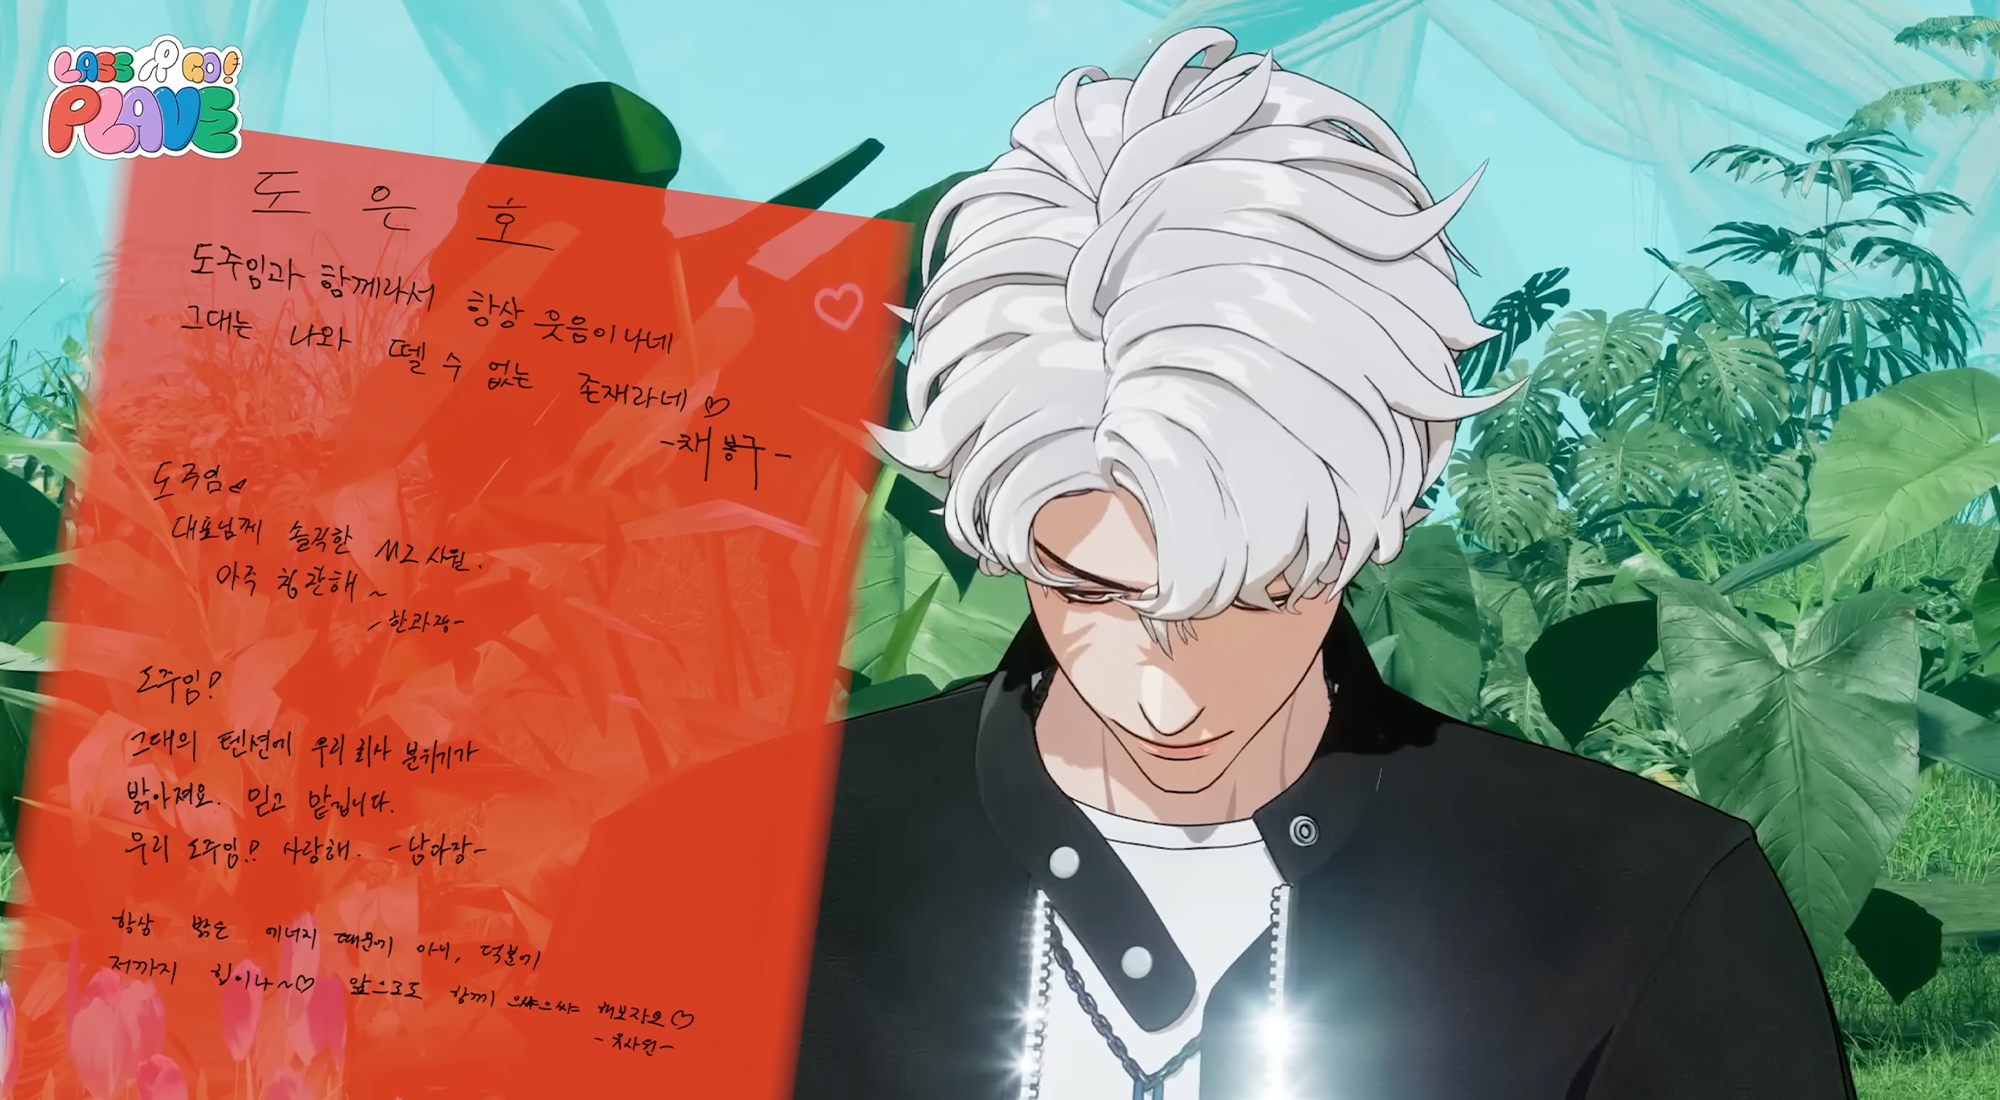 LASS GO!
PLAVE
도 은 호
도주임과 함께라서 항상 웃음이 나네
그대는 나와 뗄 수 없는 존재라네 ♡
-채봉구-
도주임
대표님께 솔직한 MZ 사원.
아주 칭찬해 ~
-한과장-
도주임!?
그대의 텐션에 우리 회사 분위기가
밝아져요. 믿고 맡깁니다.
우리 도주임!? 사랑해. -남차장-
항상 밝은 에너지 때문에 아니, 덕분에
저까지 힘이나~♡ 앞으로도 함께 으쌰으쌰 해보자요♡